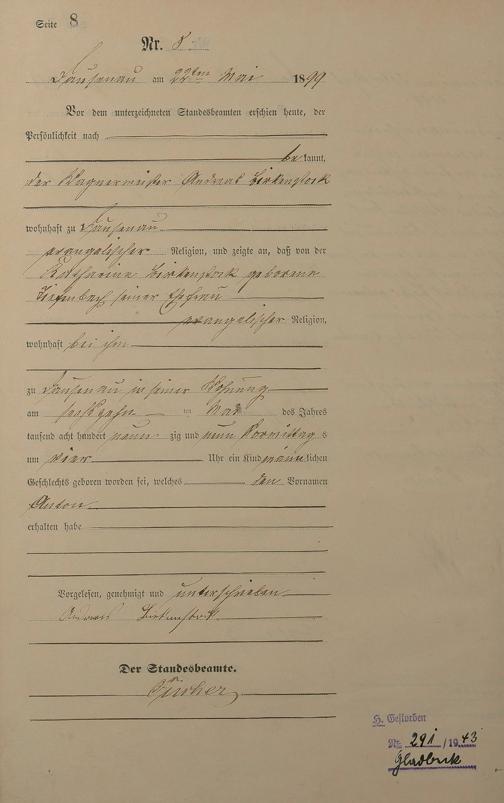 Seite 8
Nr. 8
Dausenau am 22ten Mai 1899
Vor dem unterzeichneten Standesbeamten erschien heute, der
Persönlichkeit nach
bekannt,
der Wagnermeister Andreas Birkenstock
wohnhaft zu Dausenau
evangelischer Religion, und zeigte an, daß von der
Katharine Birkenstock geborene
Tiefenbach seiner Ehefrau
evangelischer Religion,
wohnhaft bei ihm
zu Dausenau in seiner Wohnung
am sechszehn im Mai des Jahres
tausend acht hundert neunzig und neun Vormittags
um vier Uhr ein Kind männlichen
Geschlechts geboren worden sei, welches den Vornamen
Anton
erhalten habe
Vorgelesen, genehmigt und unterschrieben
Andreas Birkenstock
Der Standesbeamte.
H. Gestorben
Nr. 291/1943
Gladbeck